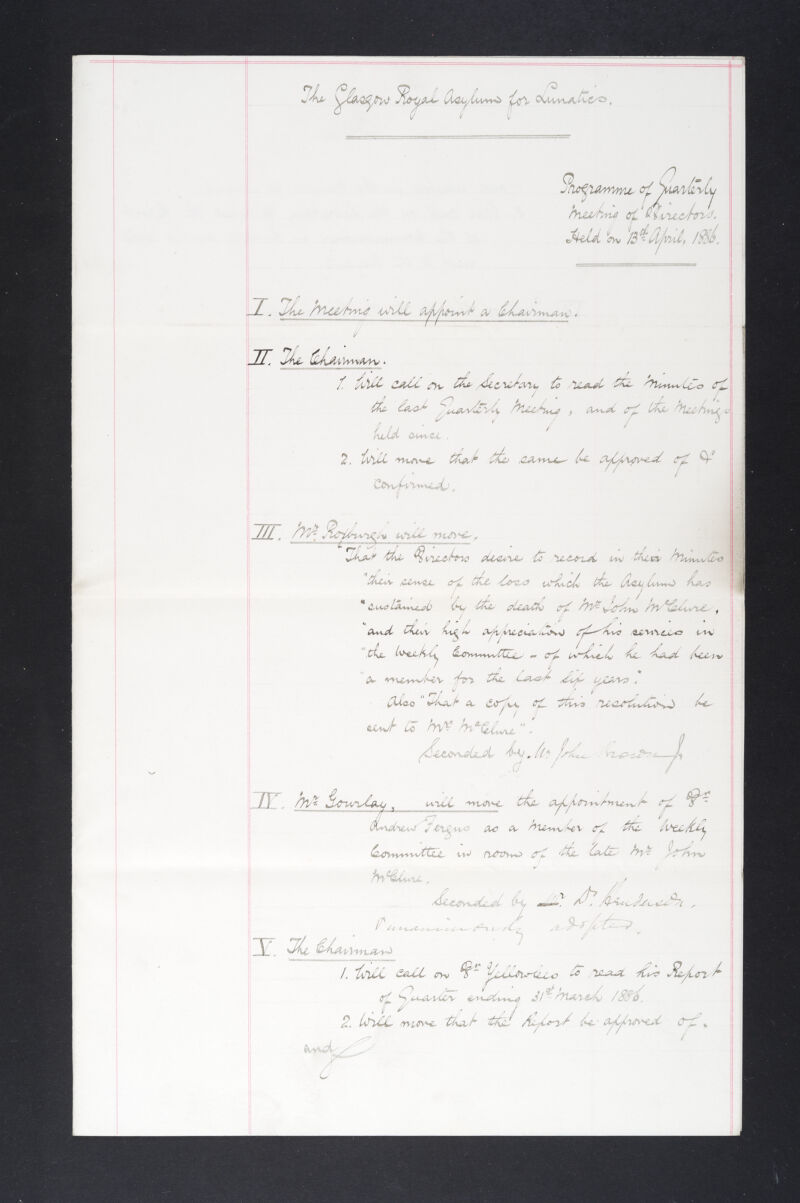 The Glasgow Royal Asylum for Lunatics.
Programme of Quarterly
Meeting of Directors.
Held on 13th April, 1886.
I. The Meeting will appoint a Chairman.
II. The Chairman.
1. Will call on the Secretary to read the Minutes of
the last Quarterly Meeting, and of the Meetings
held since.
2. Will move that the same be approved of &
confirmed.
III. Mr. Roxburgh will move.
"That the Directors desire to record in their Minutes
"their sense of the loss which the Asylum has
"sustained by the death of Mr. John McClure,
"and their high appreciation of his services in
"the Weekly Committee - of which he had been
"a member for the last six years."
Also "That a copy of this resolution be
sent to Mrs. McClure".
Seconded by. Mr John Jr
IV. Mr. Gourlay, will move the appointment of Dr.
Andrew Fergus as a Member of the Weekly
Committee in room of the late Mr. John
McClure.
Seconded by Dr. Henderson.
Unanimously adopted.
V. The Chairman
1. Will call on Dr. Yellowlees to read his Report
of Quarter ending 31st March 1886.
2. Will move that the Report be approved of.
and